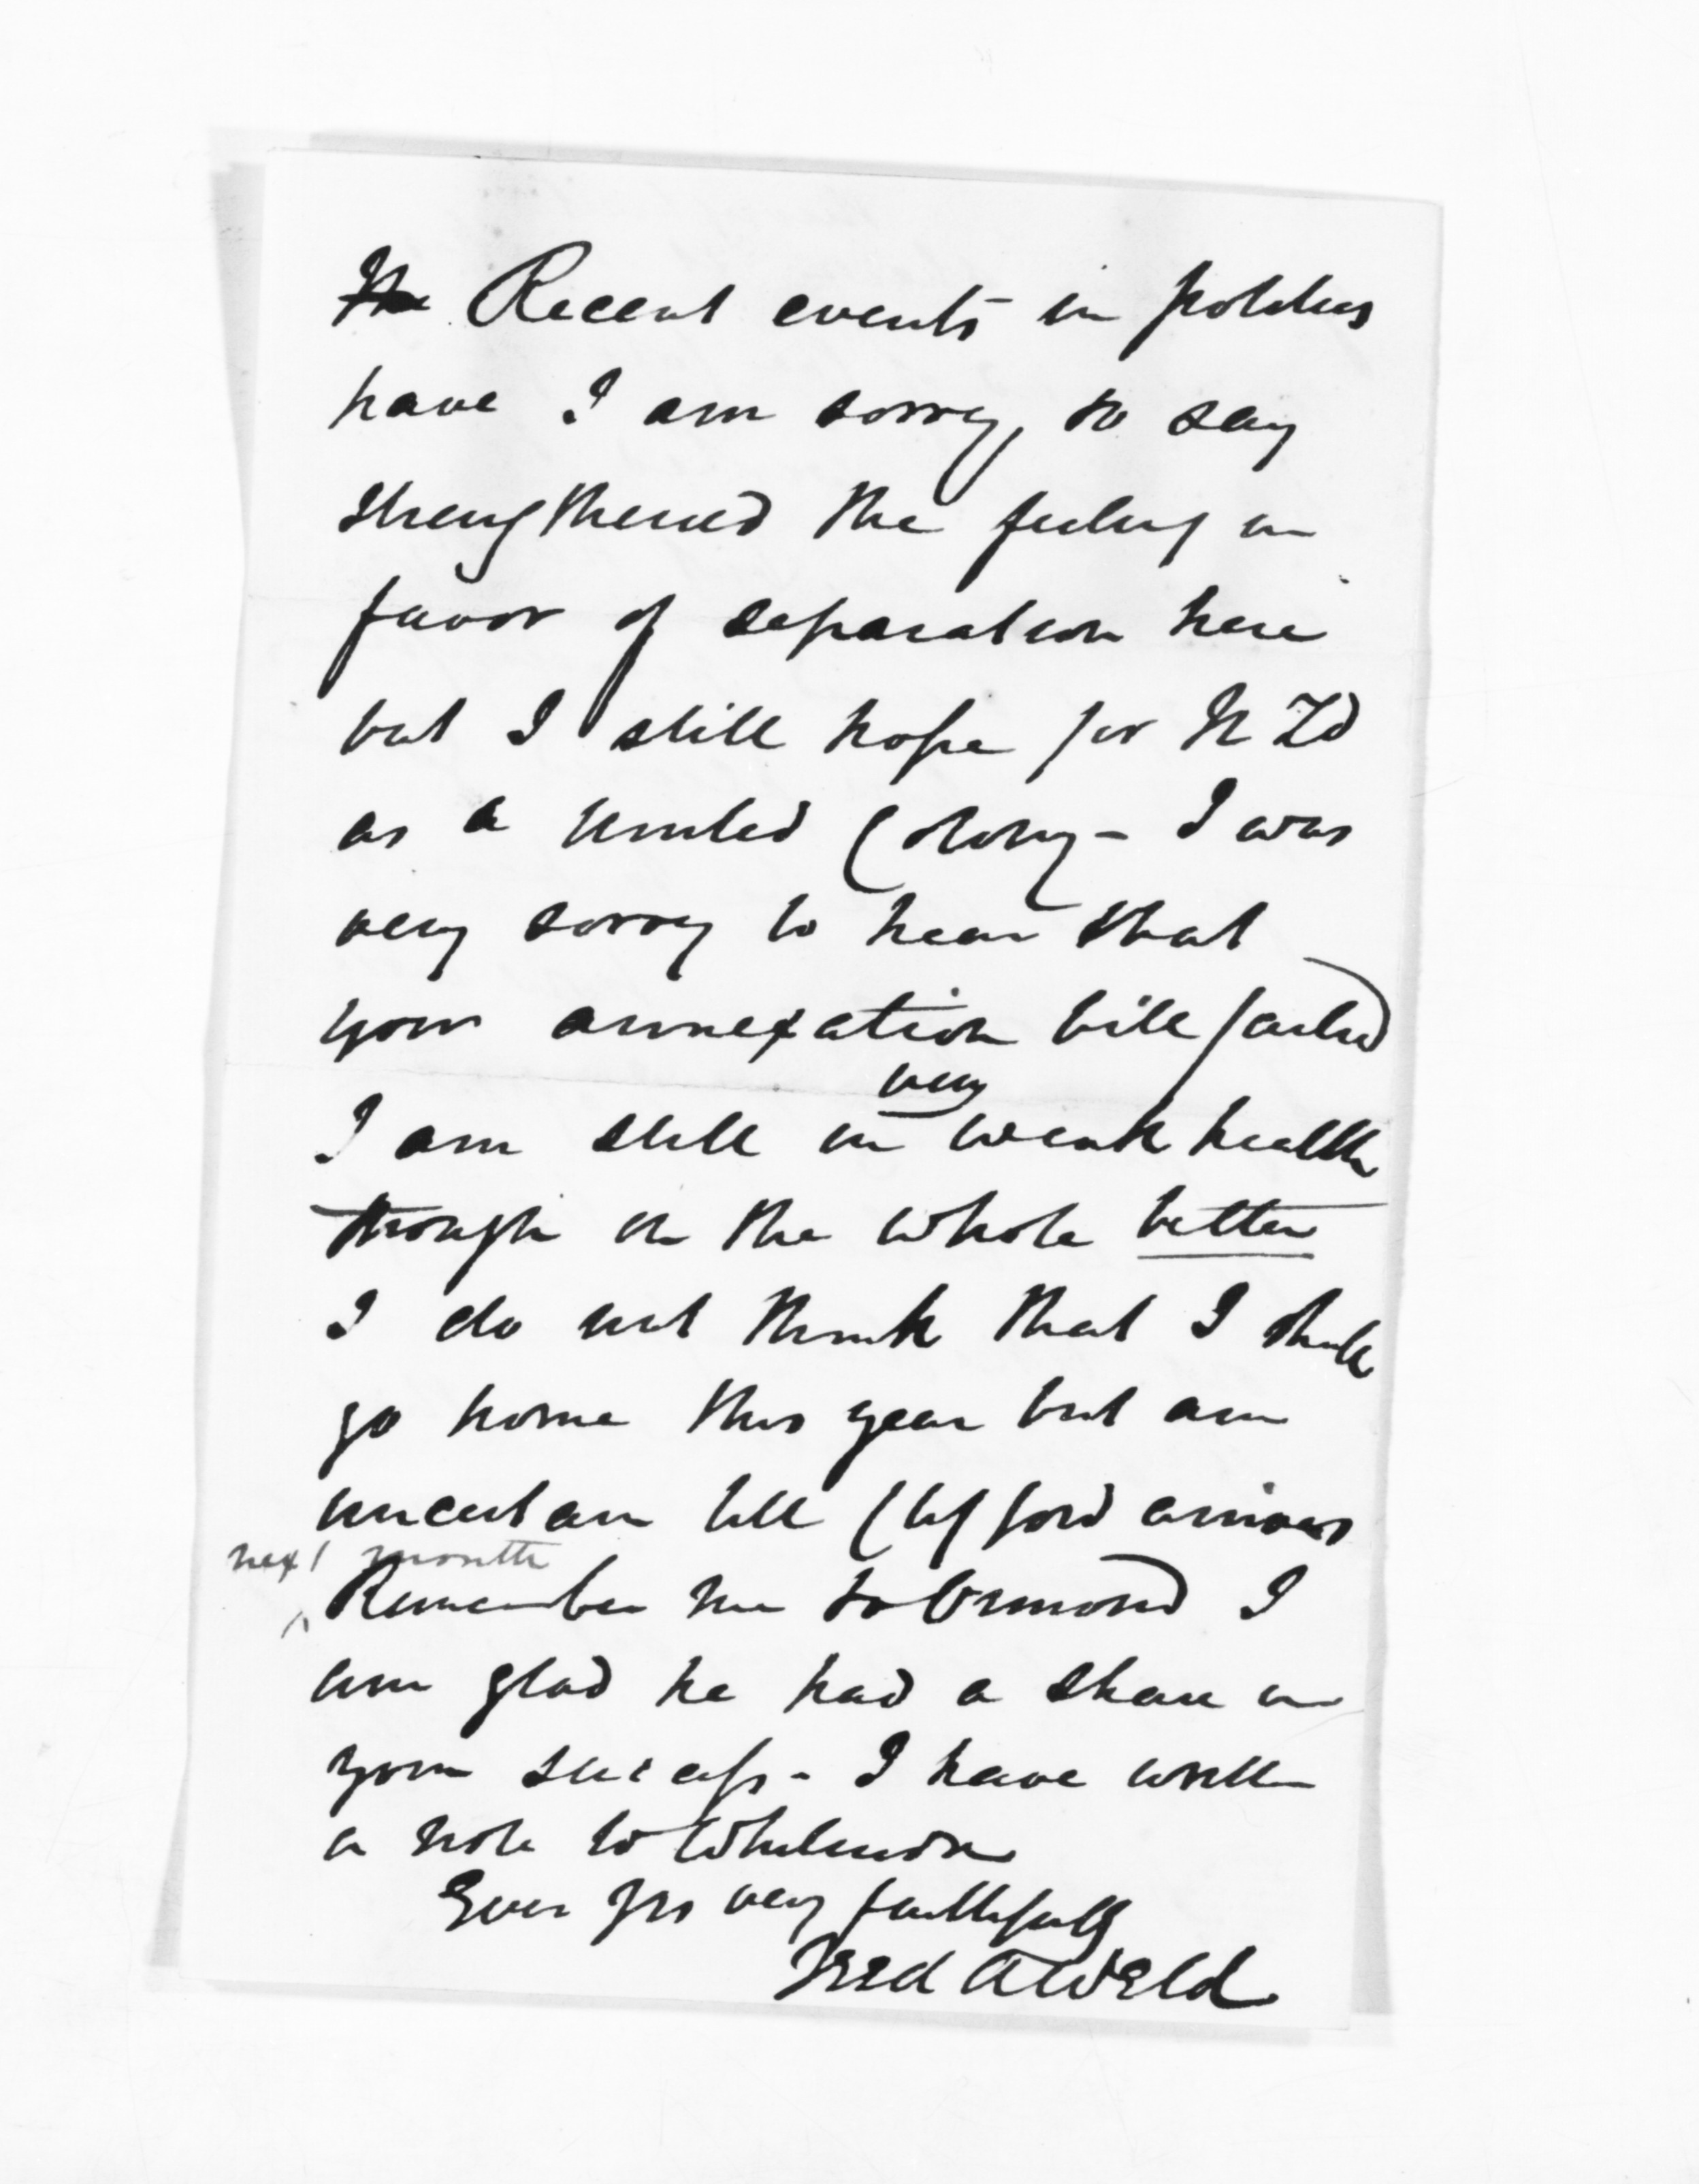 The Recent events in politics
have I am sorry, to say
strengthened the feeling in
favor of separation here
but I still hope for N Zd
as a united Colony - I was
very sorry to hear that
your annexation bill failed
very
I am still in weak health
though on the whole better
I do not think that I shall
go home this year but am
uncertain till Clifford arrives
next month
Remember me to Ormond I
am glad he had a share in
your success - I have written
a note to Whitmore
Ever Yrs very faithfully
Fred A Weld